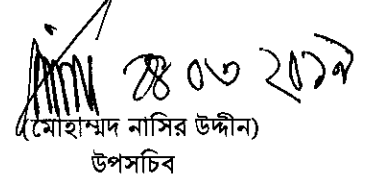 ২৪ ০৩ ২০১৯
(মোহাম্মদ নাসির উদ্দীন)
উপসচিব